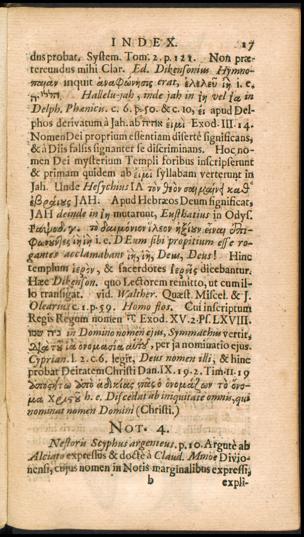 INDEX. 17
dus probat. System. Tom. 2. p. 121. Non præ-
tereundus mihi Clar. Ed. Dikensonius Hymno-
inquit ἀναφώνησις erat, ἐλελεῦ ἰὴ i. e.
Hallelu-jah, inde jah in ἰὴ vel in
Delph. Phœnic. c. 6. p. 50. & c. 10, εἰ apud Del-
phos derivatum à Jah. ab אהיה εἰμὶ Exod. III. 14.
Nomen Dei proprium essentiam disertè significans,
& à Diis falsis signanter se discriminans. Hoc no-
men Dei mysterium Templi foribus inscripserunt
& primam quidem ab εἰμὶ syllabam verterunt in
Jah. Unde Hesychius ΙΑ τὸν θεὸν σημαίνει καθ᾽
ἑβραίους JAH. Apud Hebræos Deum significat,
JAH deinde in ἰὴ mutarunt, Eusthatius in Odys.
γ. τὸ δαιμόνιον ἔλεον εἶναι ἐπι-
φωνοῦντες ἰὴ ἰὴ i. e. DEum sibi propitium esse ro-
gantes acclamabant ἰὴ, ἰὴ, Deus, Deus! Hinc
templum ἱερὸν, & sacerdotes ἱερῆς dicebantur.
Hæc Dikenson. quo Lectorem remitto, ut cum il-
lo transigat. vid. Walther. Quæst. Miscel. & J.
Olearium c. 1. p. 59. Homo fios. Cui inscriptum
Regis Regum nomen יה Exod. XV. 2. Ps. LXVIII.
in Domino nomen ejus, Symmachus vertit,
Διὰ τοῦ ἰὰ ὀνομασία αὐτοῦ, per ja nominatio ejus.
Cyprian. l. 2. c. 6. legit, Deus nomen illi, & hinc
probat Deitatem Christi Dan. IX. 19. 2. Tim. II. 19
ἀποστήτω ἀπὸ ἀδικίας πᾶς ὁ ὀνομάζων τὸ ὄνο-
μα Χριστοῦ h. e. Discedat ab iniquitate omnis, qui
nominat nomen Domini (Christi.)
NOT. 4.
Nestoris Scyphus argenteus. p. 10. Argutè ab
Alciato expressus & doctè à Claud. Minoë Divio-
nensi, cujus nomen in Notis marginalibus expressi,
b expli-